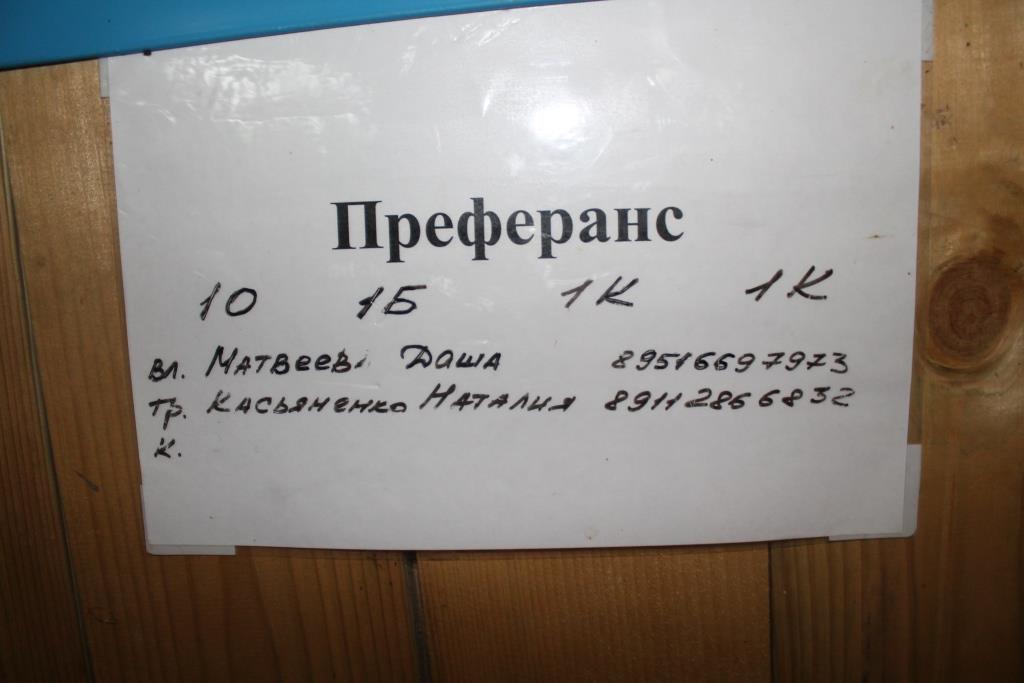 Преферанс
1О 1Б 1К 1К
вл. Матвеева Даша 89516697973
тр. Касьяненко Наталия 89112866832
к.